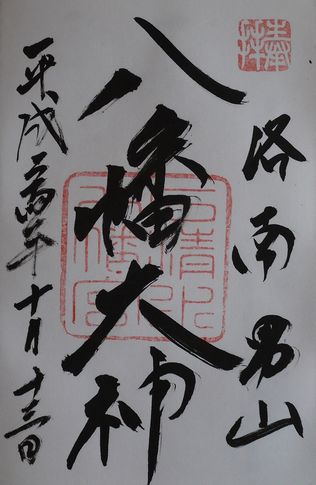 奉拝
洛南 男山
八幡大神
石清水八幡宮
平成二十四年十月十三日